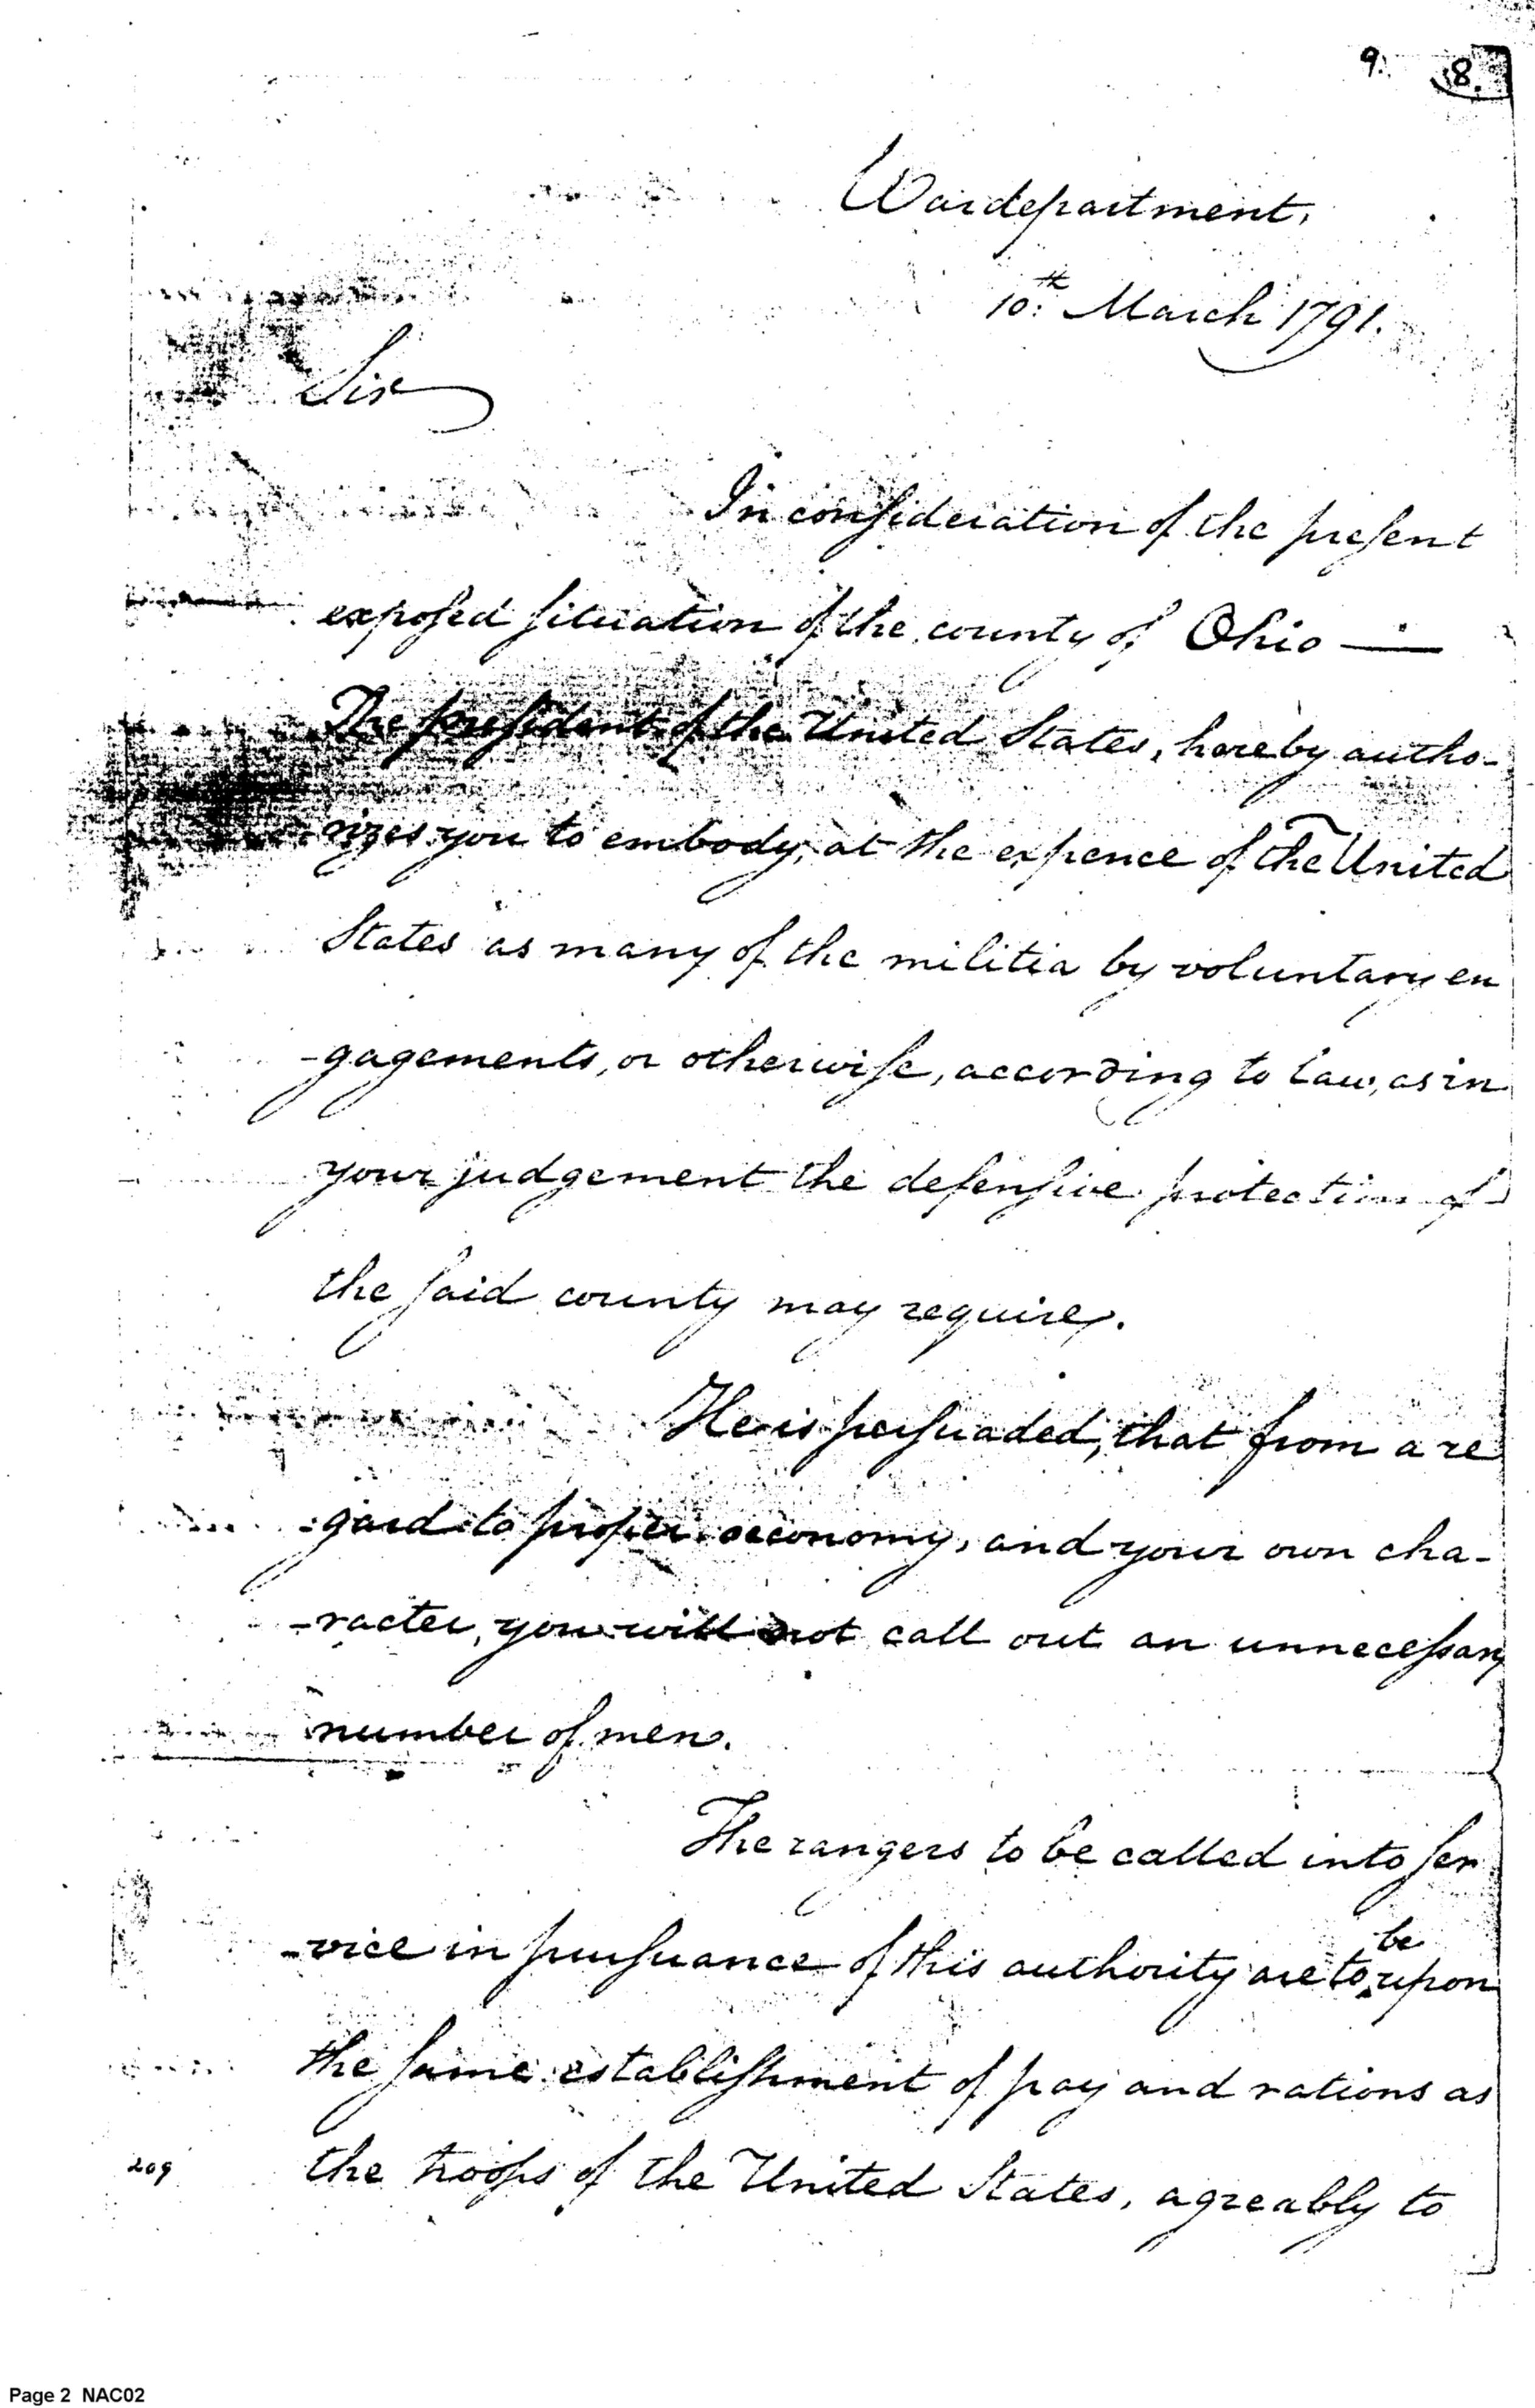 9. 8.
War department,
10th March 1791.
Sir
In consideration of the present
exposed situation of the county of Ohio —
The president of the United States, hereby autho-
rizes you to embody, at the expence of the United
States as many of the militia by voluntary en
-gagements, or otherwise, according to law, as in
your judgement the defensive protection of
the said county may require.
He is persuaded, that from a re
-gard to proper oeconomy, and your own cha-
-racter, you will not call out an unnecessary
number of men.
The rangers to be called into ser
-vice in pursuance of this authority are to be upon
the same establishment of pay and rations as
209 the troops of the United States, agreably to
Page 2 NAC02